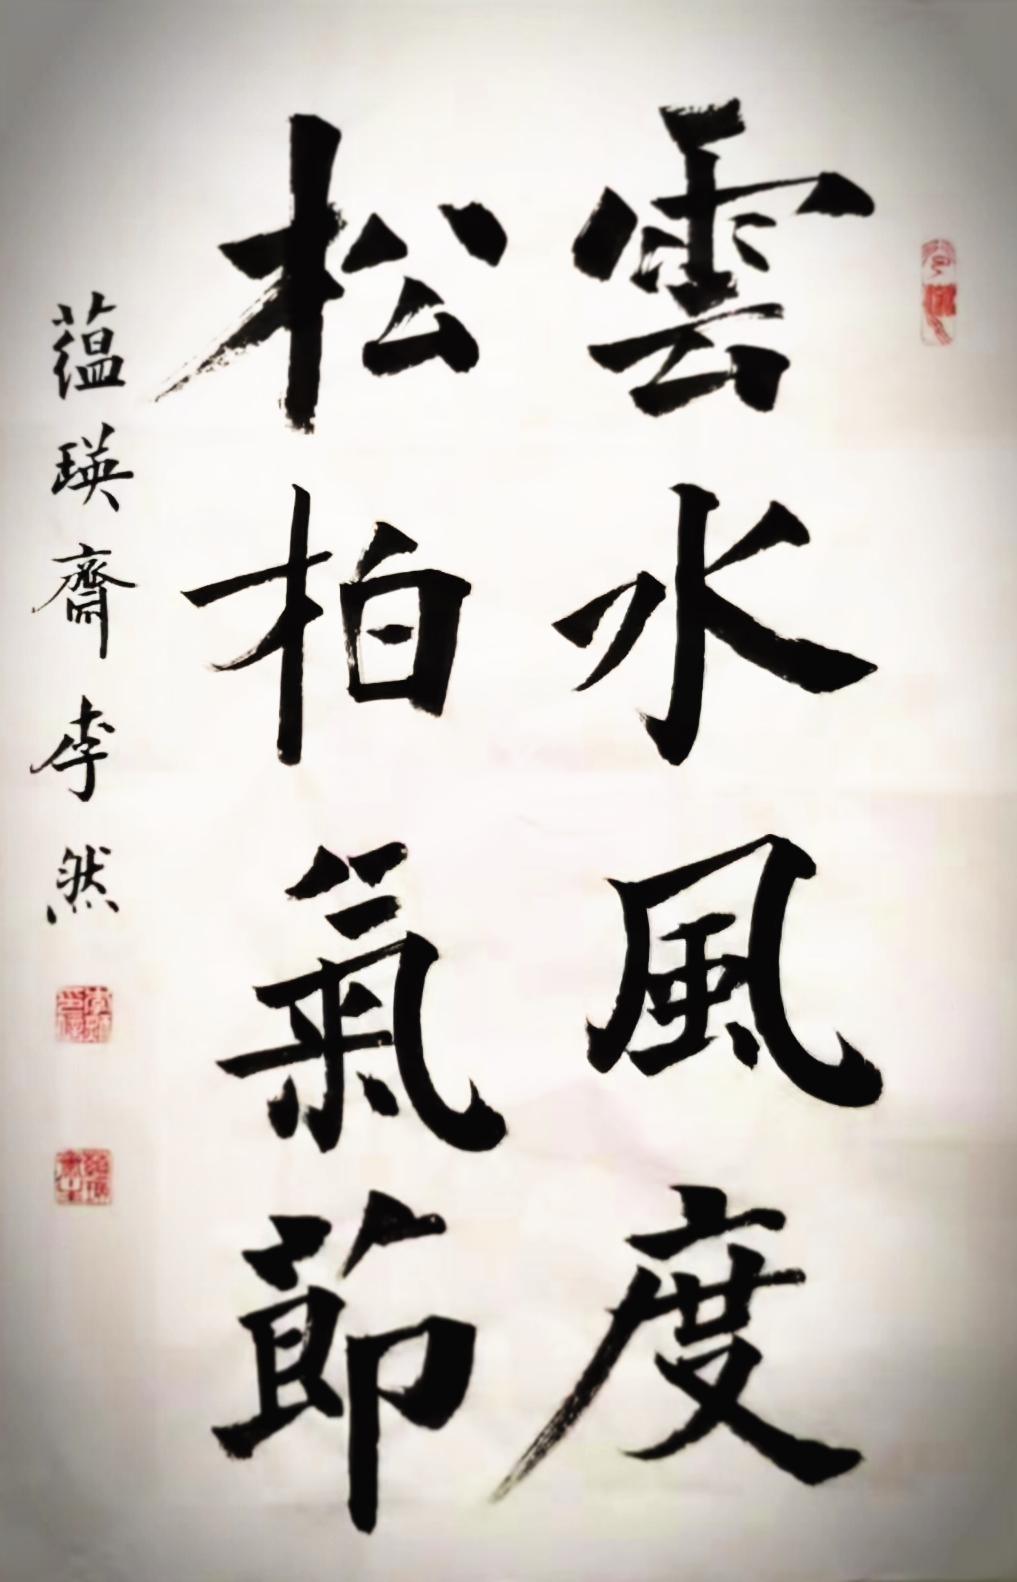 雲水風度
松柏氣節
蘊瑛齋李然